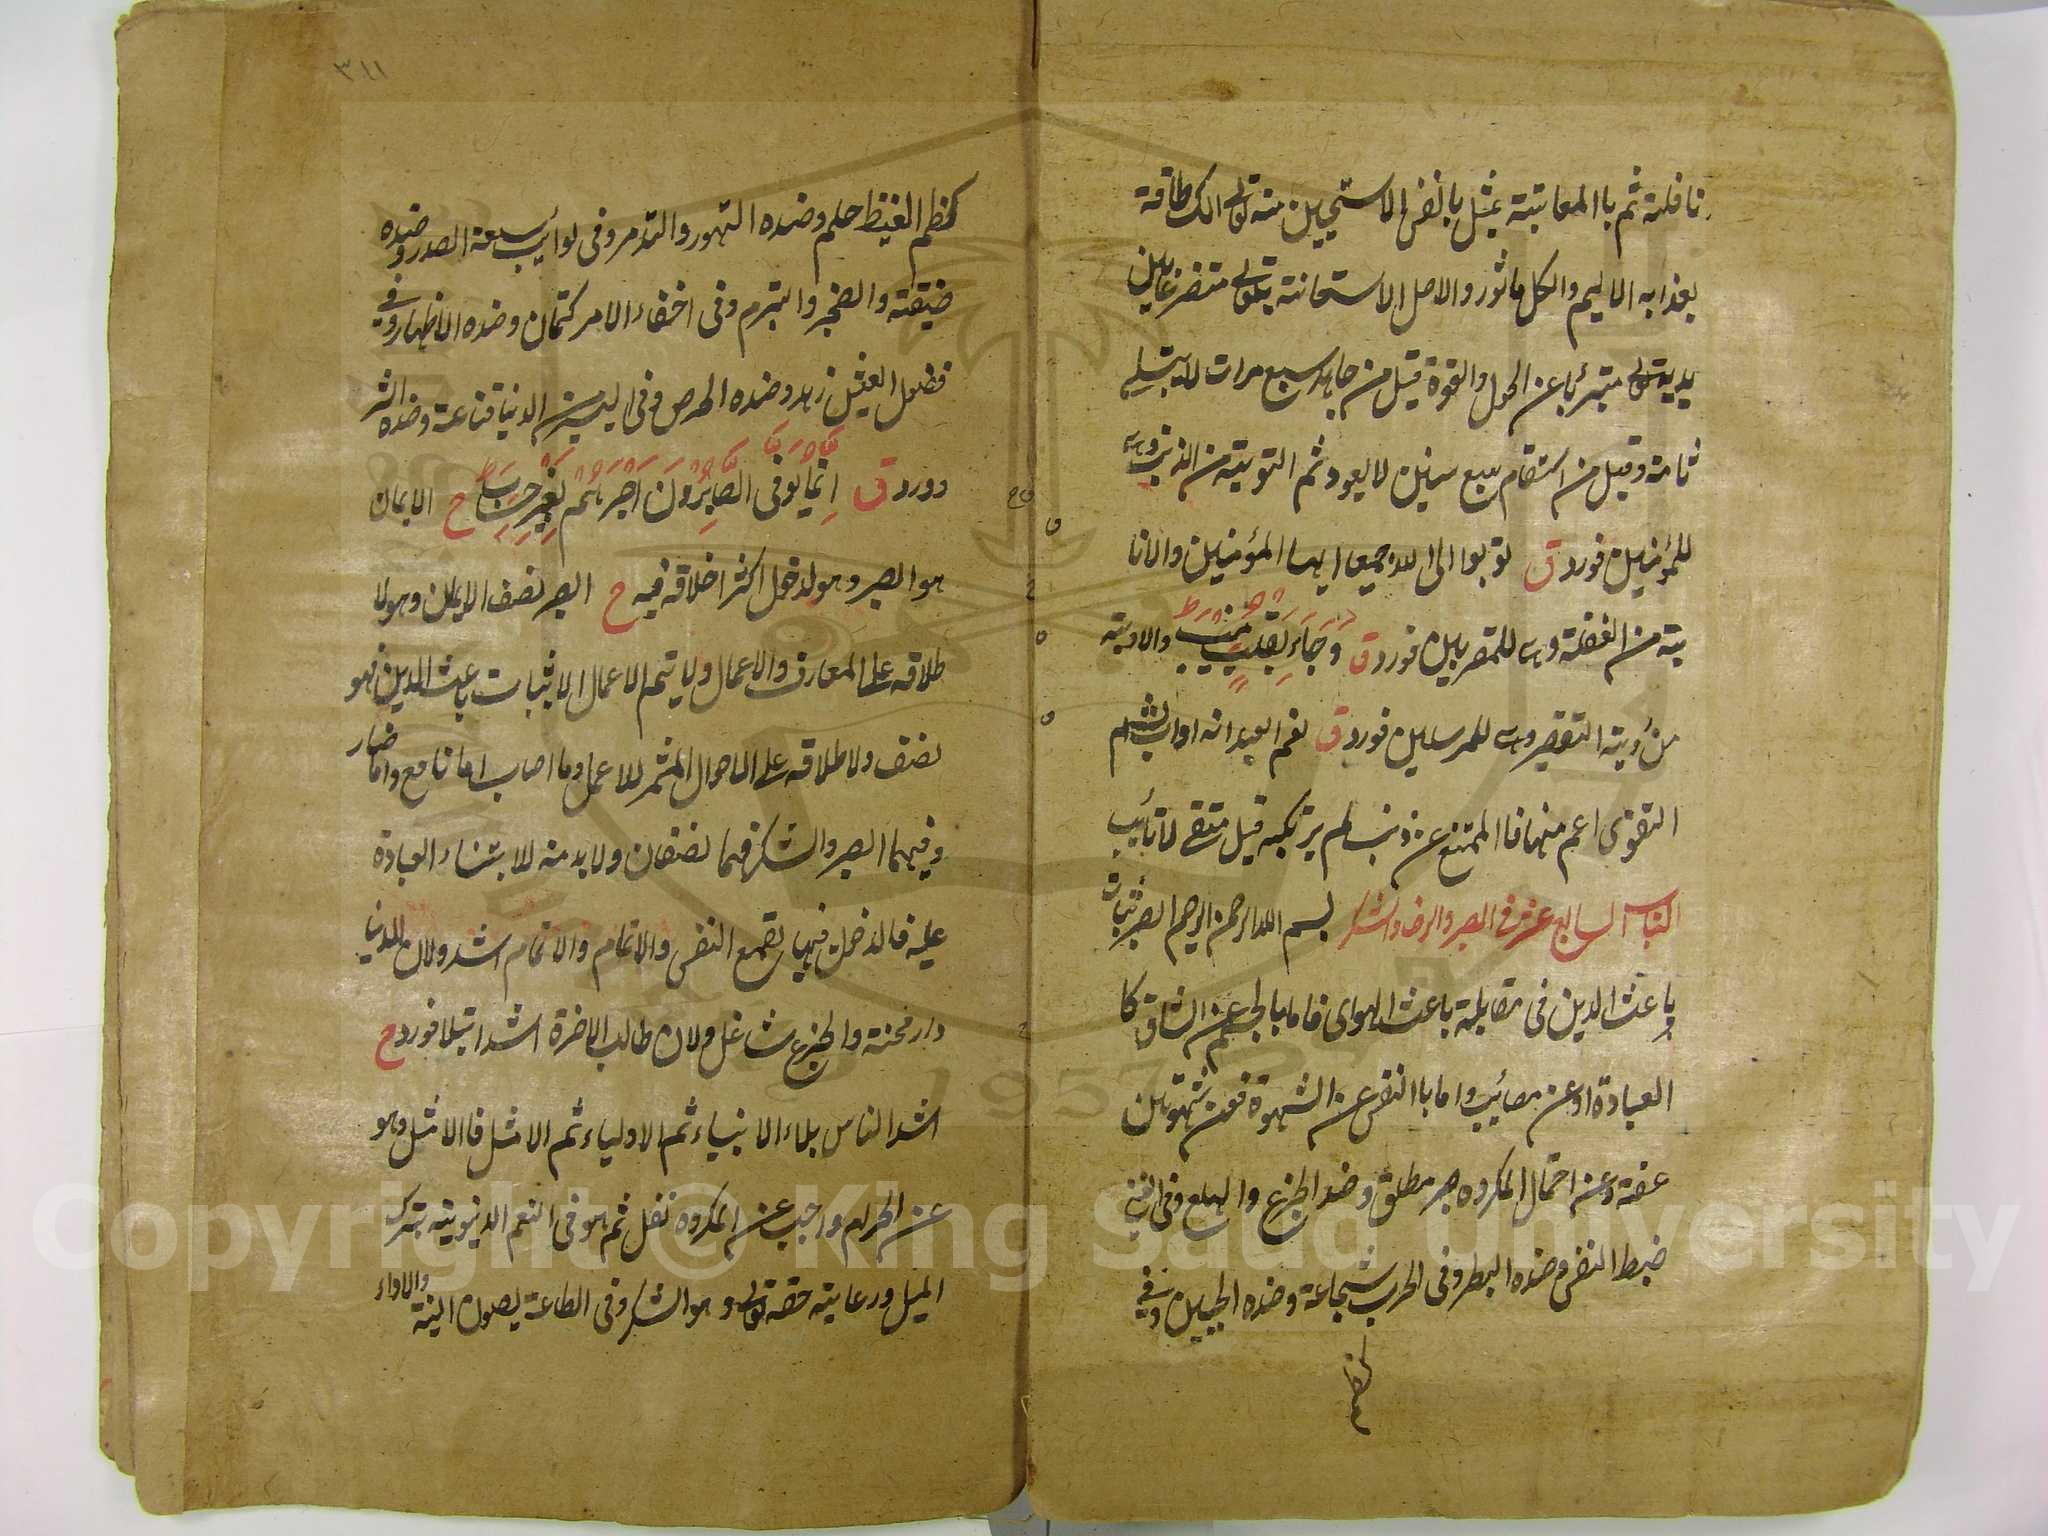 نافلة ثم با المعاتبة بمثل يا نفس الا ستحيين منه تعالى الك طاقة
بعذابه الاليم والكل ماثور والاصل الاستعانة بتعالى متضرعا بين
يديه تعالى متبرئا عن الحول والقوة قيل من جاهد سبع مرات لا يبتلى
ثامنة وقيل من استقام سبع سنين لا يعود ثم التوبة من الذنب وهى
للمؤمنين فورد ق توبوا الى الله جميعا ايها المؤمنين والانا
بة من الغفلة وهى للمقربين فورد ق وَجَاءَ بِقَلْبٍ مُنِيبٍ والاوبة
من رؤية التقصير وهى للمرسلين فورد ق نعم العبد انه اواب ثم
التقوى اعم منها فا الممتنع عن ذنب لم يرتكبه قيل متقى لا تائب
الباب السابع عشر فى الصبر والرضا والشكر بسم الله الرحمن الرحيم الصبر ثبات
باعث الدين فى مقابلة باعث الهوى فاما بالجسم عن الشاق كا
العبادة او عن مصائب واما با النفس عن الشهوة فعن شهوتين
عفة وعن احتمال المكروه صبر مطلق وضد الجزع والهلع وفى الغنى
ضبط النفس وضده البطر وفى الحرب شجاعة وضده الجبن وفى
كظم
٣١١
كظم الغيظ حلم وضده التهور والتذمر وفى نوائب سعة الصدر وضده
ضيقة والضجر والتبرم وفى اخفاء الامر كتمان وضده الاظهار وفى
فضول العيش زهد وضده الحرص وفى اليسير من الدنيا قناعة وضده الشر
وورد ق اِنَّمَا يُوَفَّى الصَّابِرُونَ اَجْرَهُمْ بِغَيْرِ حِسَابٍ ح الايمان
هو الصبر وهو لدخول اكثر اخلاقه فيه ح الصبر نصف الايمان وهو لا
طلاقه على المعارف والاعمال ولا يتم الاعمال الا بثبات باعث الدين فهو
نصف ولا طلاقه على الاحوال المثمر للاعمال وما اصاب اما نافع واما ضار
وفيهما الصبر والشكر فهما نصفان ولا بد منه لا بتناء العبادة
عليه فالدخول فيها بقمع النفس والاتمام والاتمام اشد ولان الدنيا
دار محنة والجزع شاغل ولان طالب الاخرة اشد ابتلا فورد ح
اشد الناس بلاء الانبياء ثم الاولياء ثم الامثل فا الامثل وهو
عن الحرام واجب عن المكروه نفل ثم هو فى النعم الدنيوية بترك
الميل ورعاية حقه تعالى وهو الشكر وفى الطاعة بصون النية والاداء
Copyright © King Saud University
1957